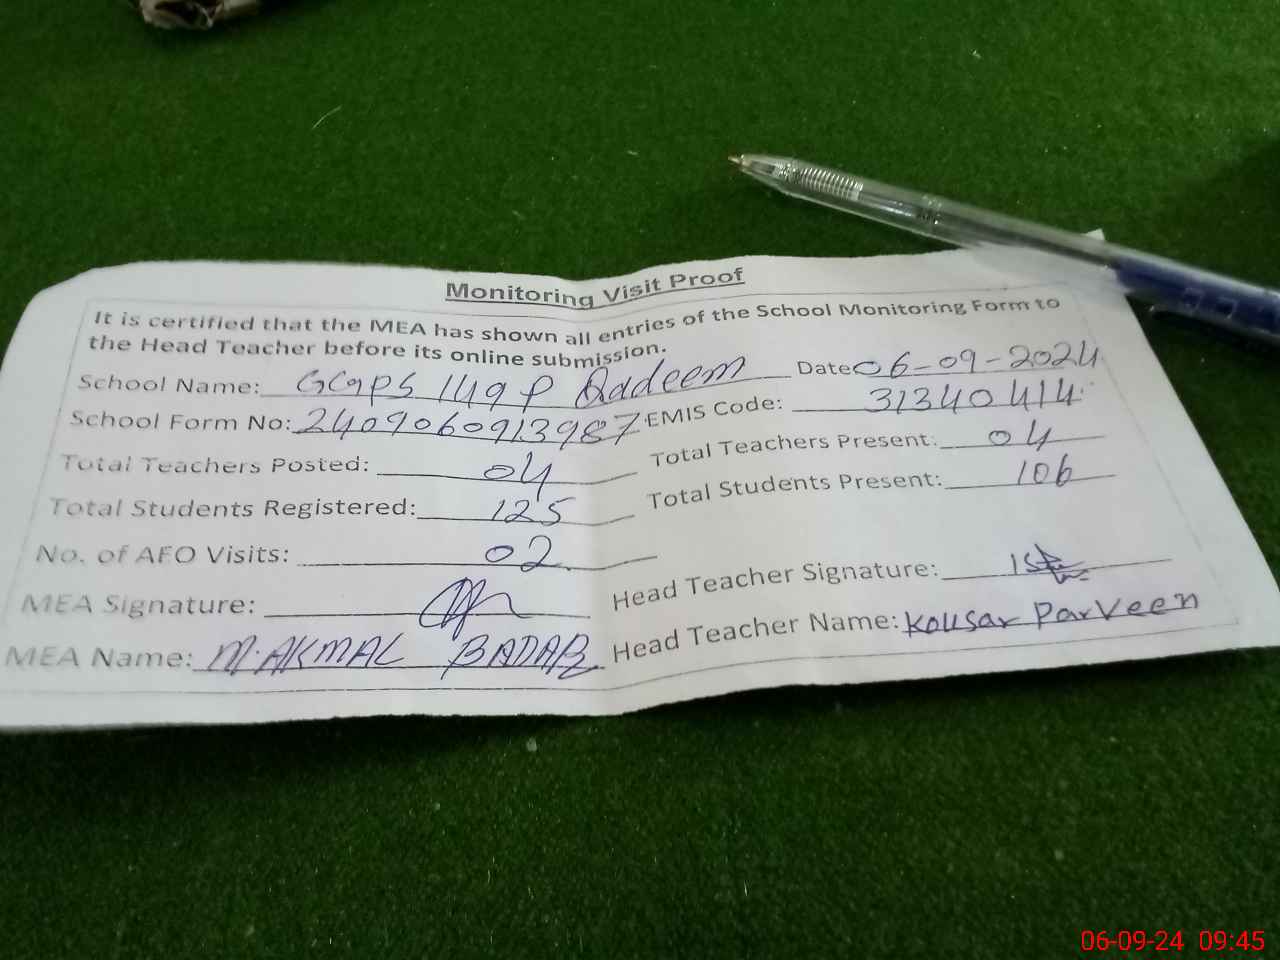 Monitoring Visit Proof
It is certified that the MEA has shown all entries of the School Monitoring Form to
the Head Teacher before its online submission.
School Name: GGPS 149 P Qadeem Date 06-09-2024
School Form No: 2409060913987 EMIS Code: 31340414
Total Teachers Posted: 04 Total Teachers Present: 04
Total Students Registered: 125 Total Students Present: 106
No. of AEO Visits: 02
MEA Signature: Head Teacher Signature:
MEA Name: M. AKMAL BADAR Head Teacher Name: Kousar Parveen
06-09-24 09:45